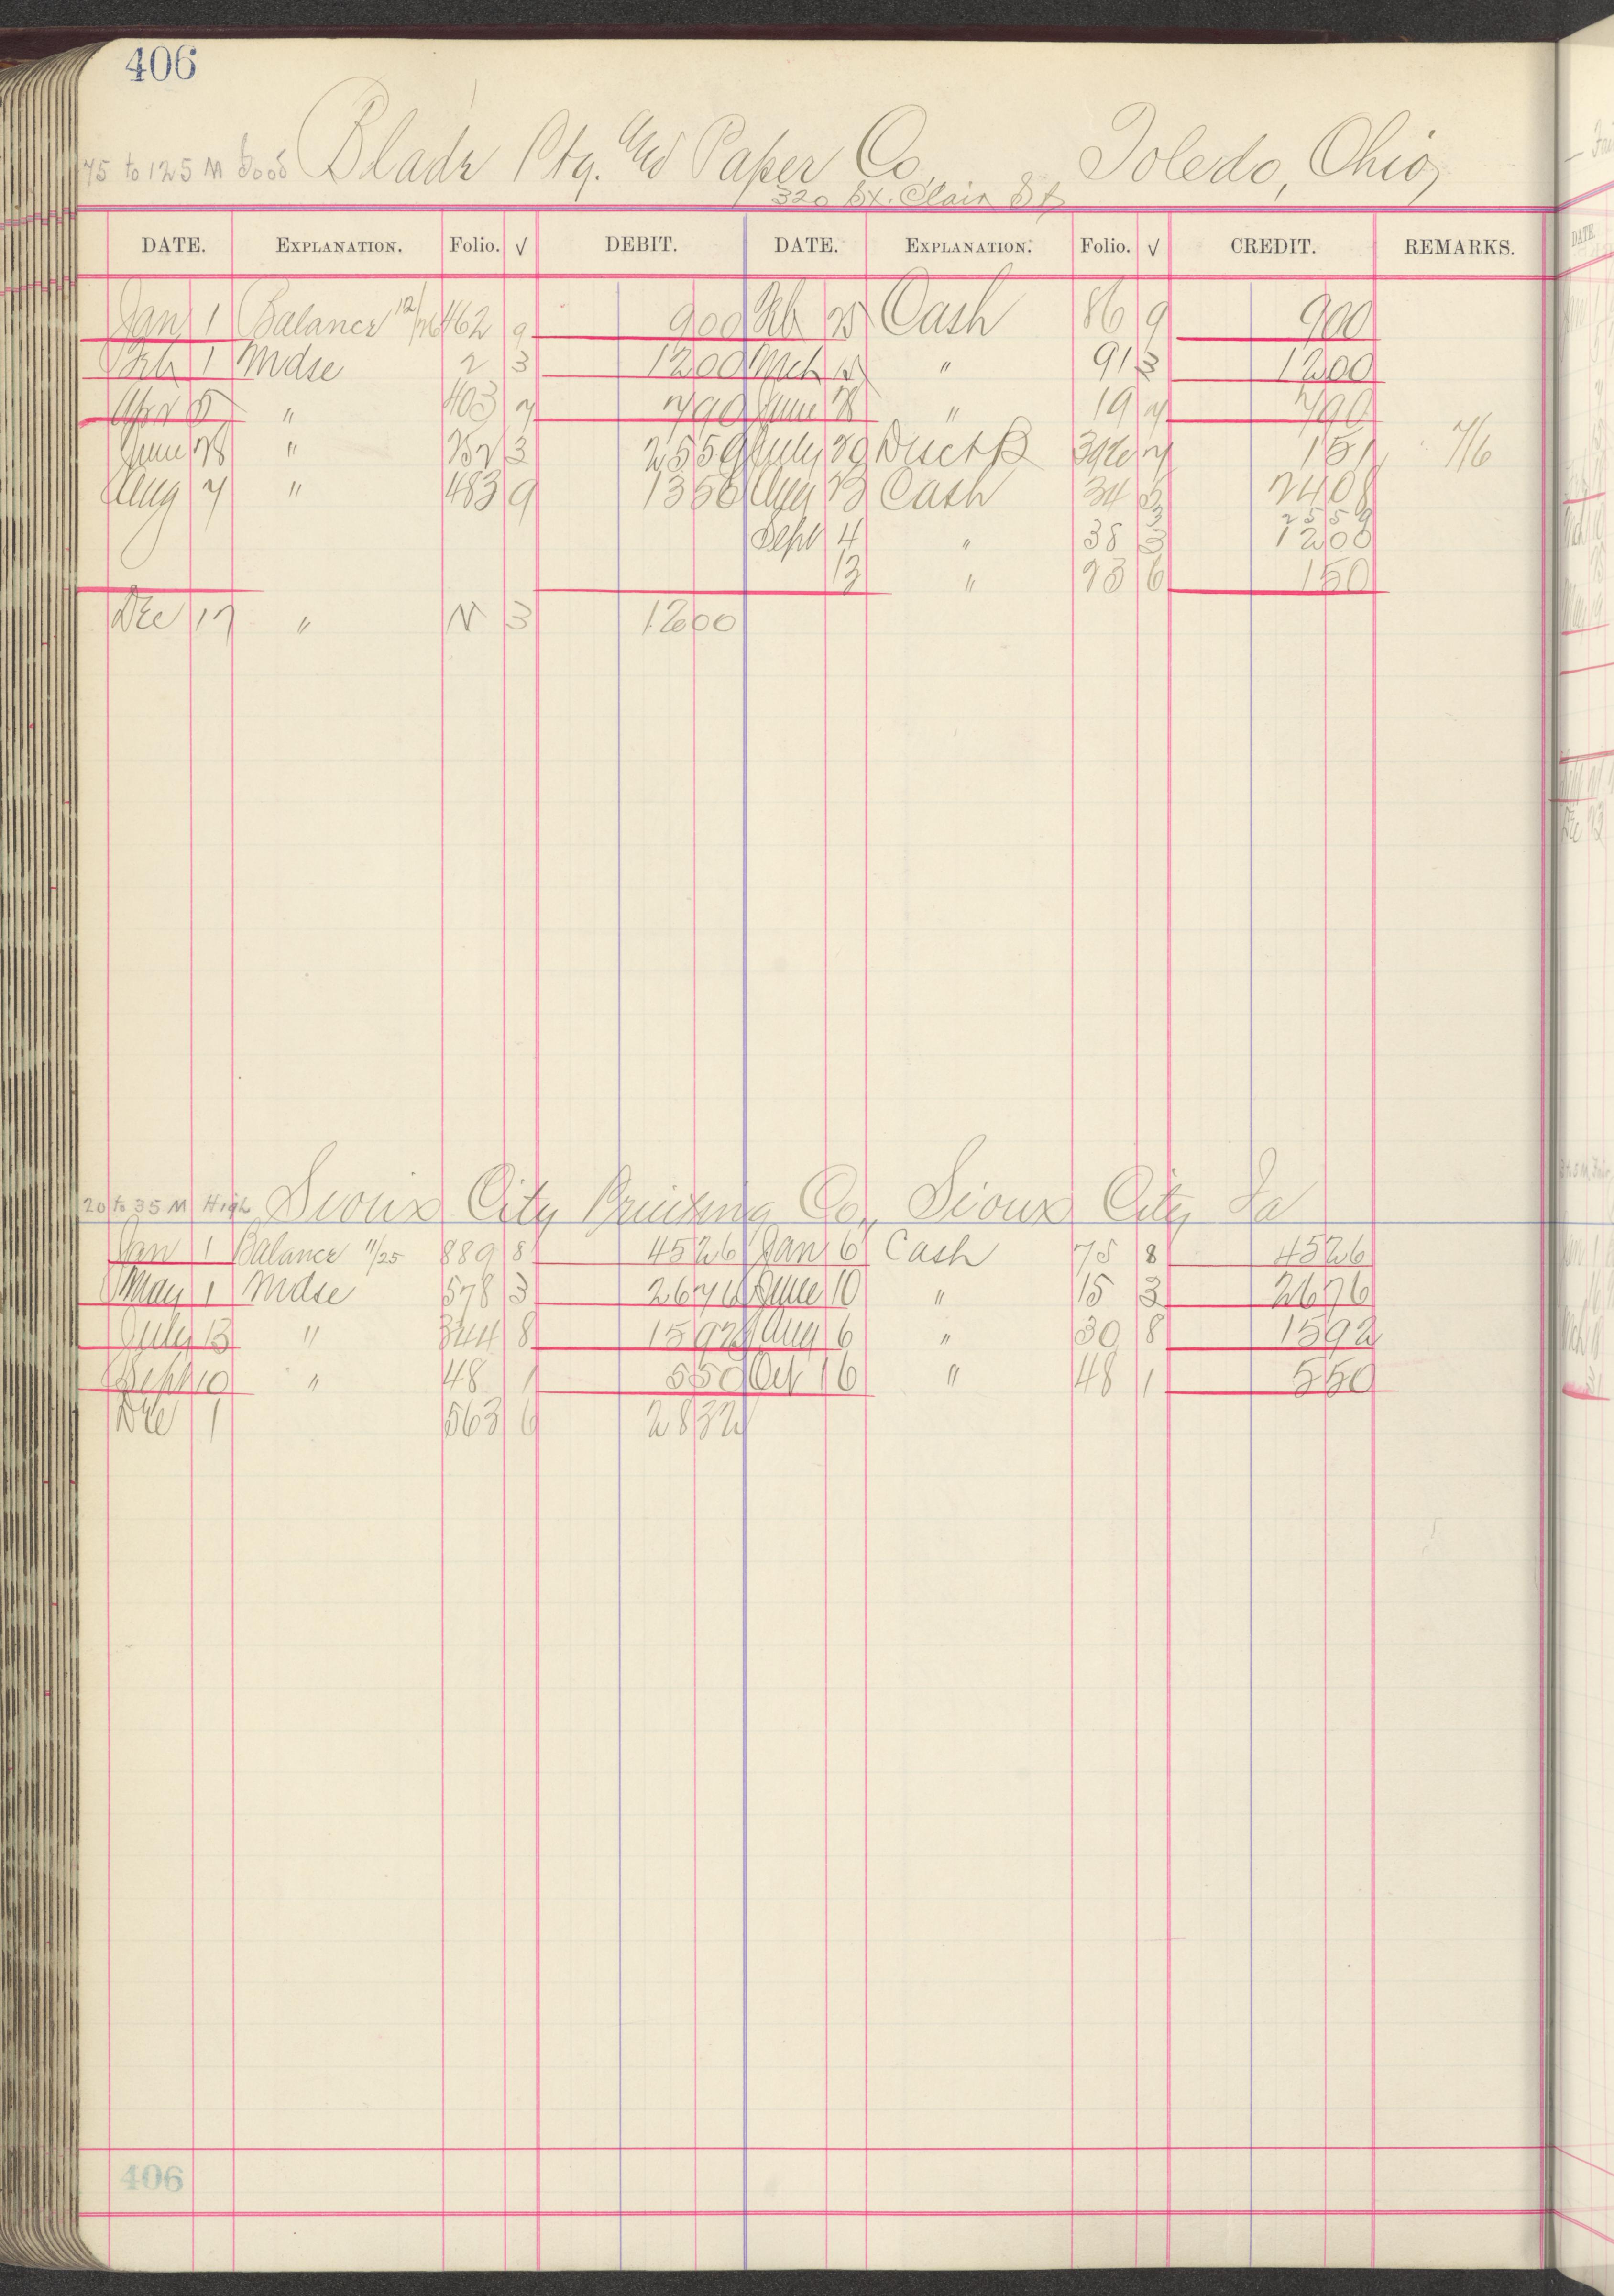 406
75 to 125 M Good Blade Ptg. and Paper Co. Toledo, Ohio,
320 St. Clair St
DATE. EXPLANATION. Folio. √ DEBIT. DATE. EXPLANATION. Folio. √ CREDIT. REMARKS.
Jan 1 Balance 12/26 462 9 900 Feb 25 Cash 86 9 900
Feb 1 Mdse 2 3 1200 Mch " 91 3 1200
Apr 5 " 403 7 790 June 28 " 19 7 790
June 28 " 3 2559 July 29 Disct 392 7 151 7/6
Aug 7 " 483 9 1358 Aug 23 Cash 34 3 2408
2559
Sept 4 " 38 3 1208
13 " 93 6 150
Dec 17 " 3 1200
20 to 35 M High Sioux City Printing Co., Sioux City Ia
Jan 1 Balance 11/25 889 8 4526 Jan 6 Cash 75 8 4526
May 1 Mdse 578 3 2676 June 10 " 15 3 2676
July 13 " 344 8 1592 Aug 6 " 30 8 1592
Sept 19 " 48 1 550 Oct 16 " 48 1 550
Dec 1 " 563 6 2832
406